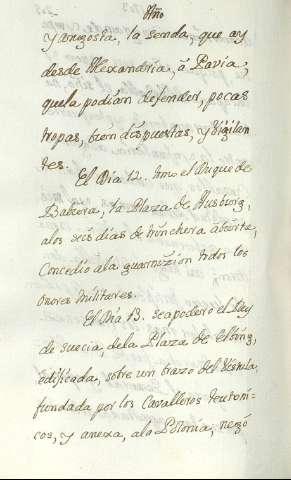 Año
Y angosta, la senda, que ay
desde Alexandria, â Pavia,
que la podian defender, pocas
tropas, bien dispuestas, y vigilan
tes.
El Dia 12. tomo el Duque de
Babiera, la Plaza de Ausburg,
alos seis dias de trinchera abierta,
Concedio ala guarnizion todos los
onores militares.
El Dia 13. se apoderó el Rey
de suecia, dela Plaza de Elbing,
edificada, sobre un brazo del Vistula,
fundada por los Cavalleros teutoni-
cos, y anexa, ala Polonia, negó